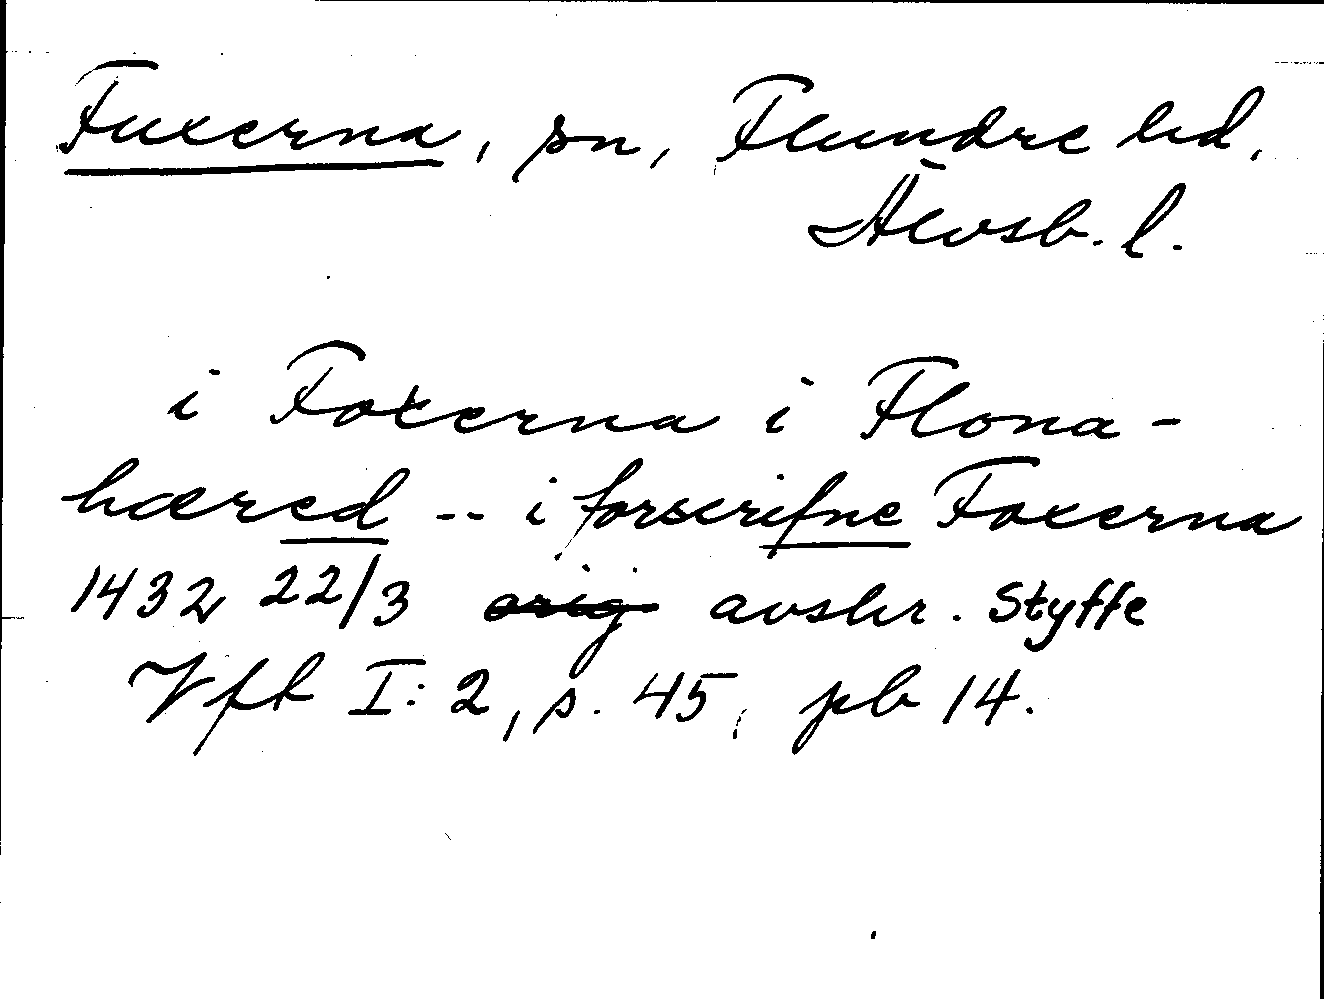 Fuxerna, sn, Flundre hd,
Älvsb. l.
i Foxerna i Flona-
hæred -- i forscrifne Foxerna
1432 22/3 orig avskr. Styffe
Vft I: 2, s. 45, pb 14.